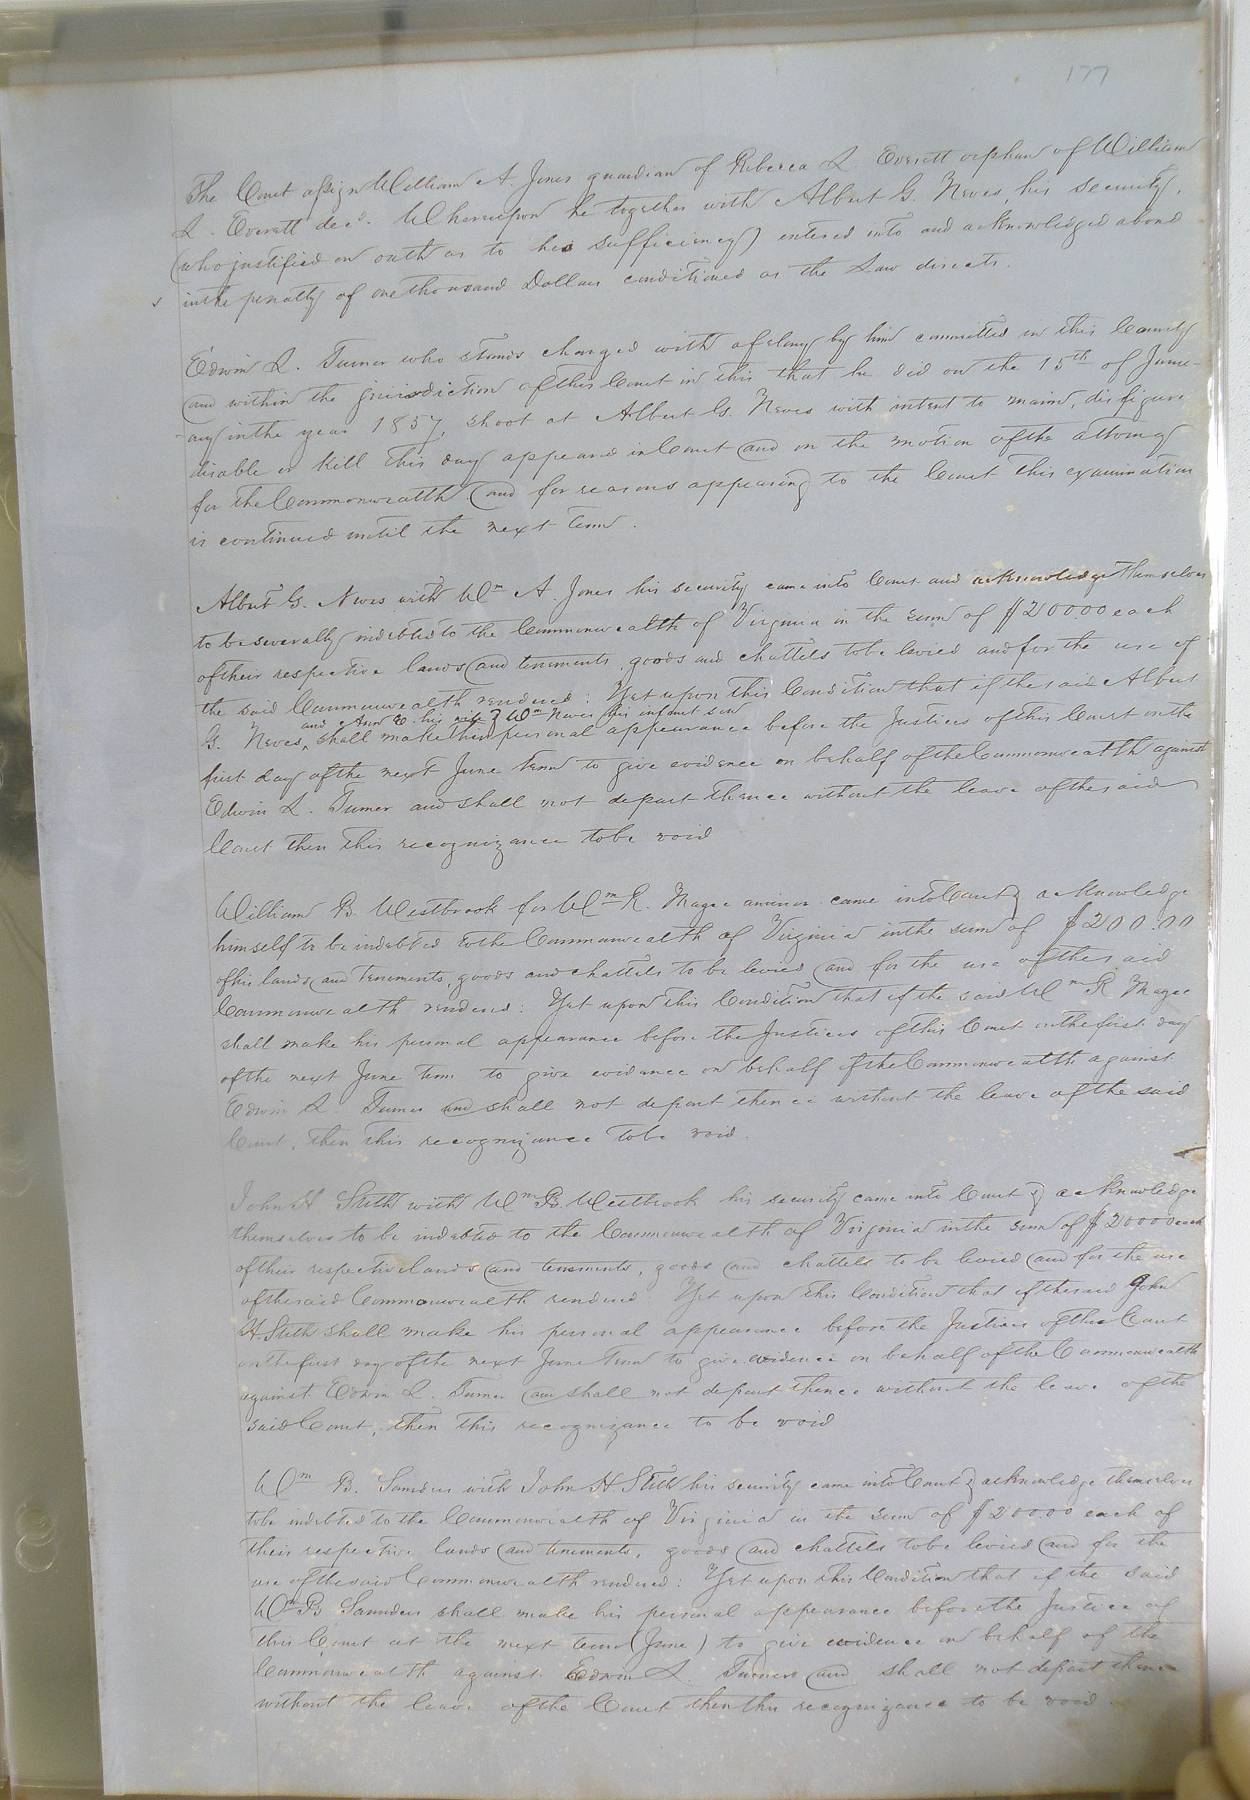 177
The Court assign William A. Jones guardian of Rebecca L. Everett orphan of William
L. Everett decd. Whereupon he together with Albert G. Neves, his security,
(who justified on oath as to his sufficiency) entered into and acknowledged a bond
in the penalty of one thousand Dollars conditioned as the Law directs.
Edwin L. Turner who stands charged with a felony by him committed in this County
and within the jurisdiction of this Court in this that he did on the 15th of Janu-
-ary in the year 1857, shoot at Albert G. Neves with intent to maim, disfigure
disable or kill this day appeared in Court and on the motion of the attorney
for the Commonwealth and for reasons appearing to the Court this examination
is continued until the next term.
Albert G. Neves with Wm A Jones his security came into Court and acknowledge themselves
to be severally indebted to the Commonwealth of Virginia in the sum of $200.00 each
of their respective lands and tenements, goods and chattels to be levied and for the use of
the said Commonwealth rendered: Yet upon this Condition that if the said Albert
and Ann E. his wife & Wm Neves his infant son
G. Neves, shall make their personal appearance before the Justices of this Court on the
first day of the next June term to give evidence on behalf of the Commonwealth against
Edwin L. Turner and shall not depart thence without the leave of the said
Court then this recognizance to be void
William B. Westbrook for Wm R. Magee a minor came into Court & acknowledge
himself to be indebted to the Commonwealth of Virginia in the sum of $200.00
of his lands and tenements, goods and chattels to be levied and for the use of the said
Commonwealth rendered: Yet upon this Condition that if the said Wm R Magee
shall make his personal appearance before the Justices of this Court on the first day
of the next June term to give evidence on behalf of the Commonwealth against
Edwin L. Turner and shall not depart thence without the leave of the said
Court, then this recognizance to be void.
John H Stith with Wm B. Westbrook his security came into Court & acknowledge
themselves to be indebted to the Commonwealth of Virginia in the sum of $200.00 each
of their respective lands and tenements, goods and chattels to be levied and for the use
of the said Commonwealth rendered. Yet upon this Condition that if the said John
H Stith shall make his personal appearance before the Justices of this Court
on the first day of the next June term to give evidence on behalf of the Commonwealth
against Edwin L. Turner and shall not depart thence without the leave of the
said Court, then this recognizance to be void
Wm B. Saunders with John H Stith his security came into Court & acknowledge themselves
to be indebted to the Commonwealth of Virginia in the sum of $200.00 each of
their respective lands and tenements, goods and chattels to be levied and for the
use of the said Commonwealth rendered: Yet upon this Condition that if the said
Wm B Saunders shall make his personal appearance before the Justice of
this Court at the next term (June) to give evidence on behalf of the
Commonwealth against Edwin L. Turner and shall not depart thence
without the leave of the Court then this recognizance to be void.